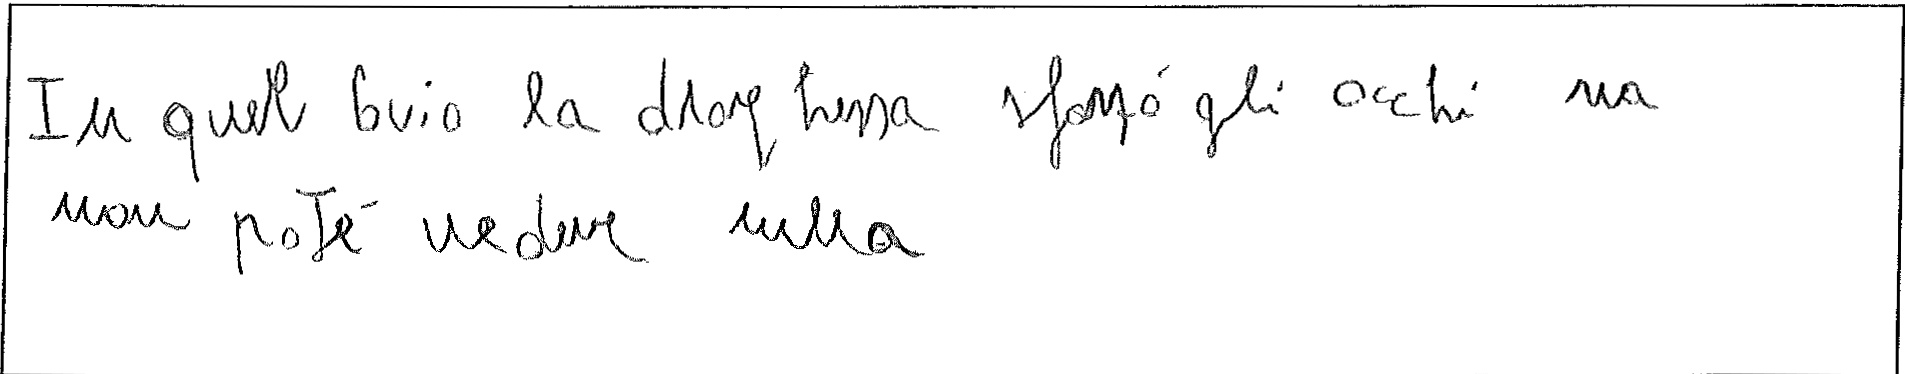 In quel buio la draghessa sforzó gli occhi ma
non poté vedere nulla